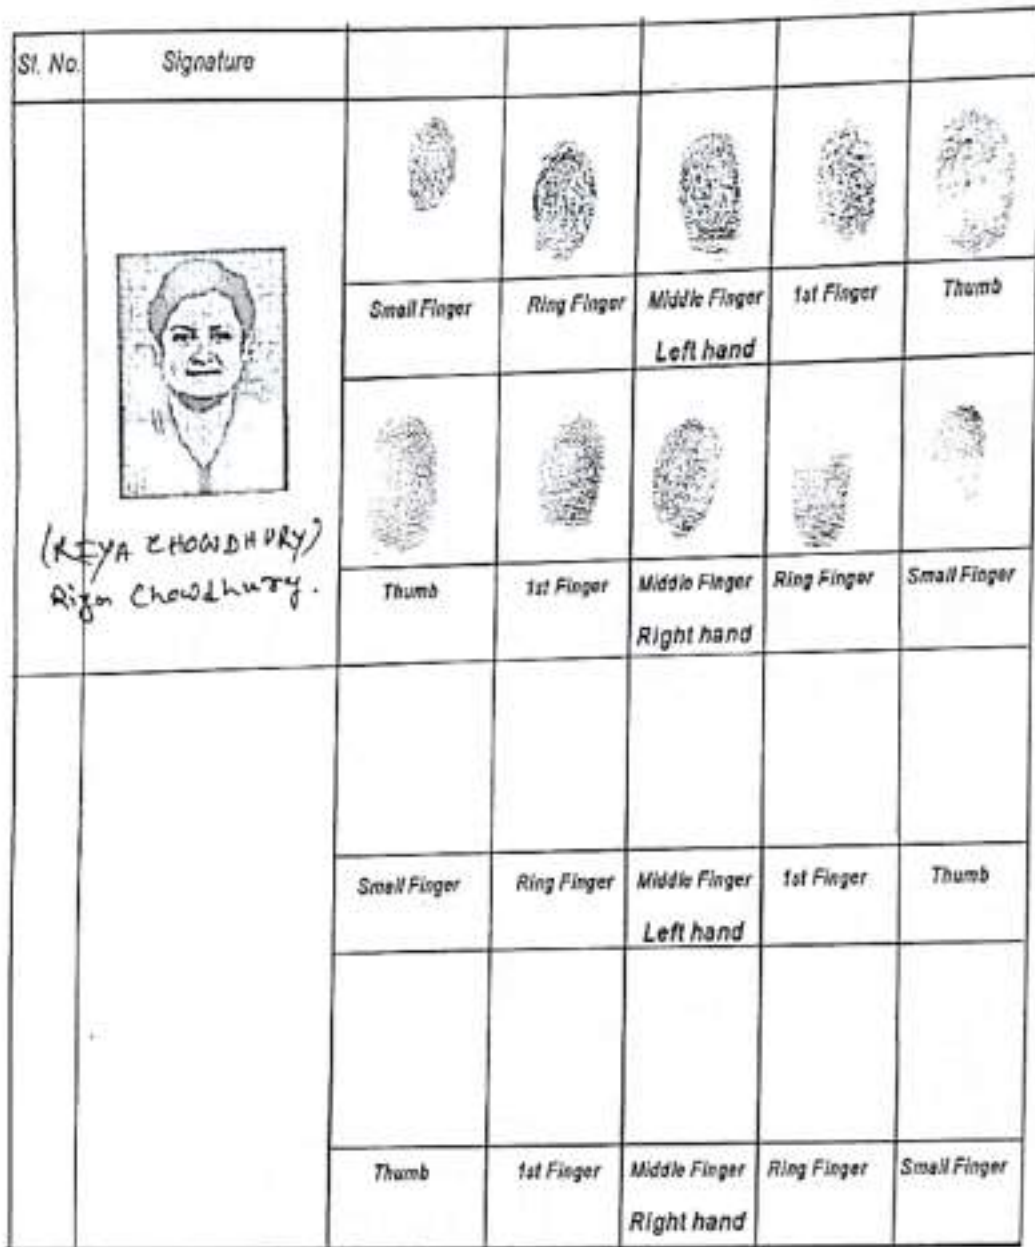 Sl. No. Signature
Small Finger Ring Finger Middle Finger 1st Finger Thumb
Left hand
(RIYA CHOWDHURY)
Riya Chowdhury.
Thumb 1st Finger Middle Finger Ring Finger Small Finger
Right hand
Small Finger Ring Finger Middle Finger 1st Finger Thumb
Left hand
Thumb 1st Finger Middle Finger Ring Finger Small Finger
Right hand